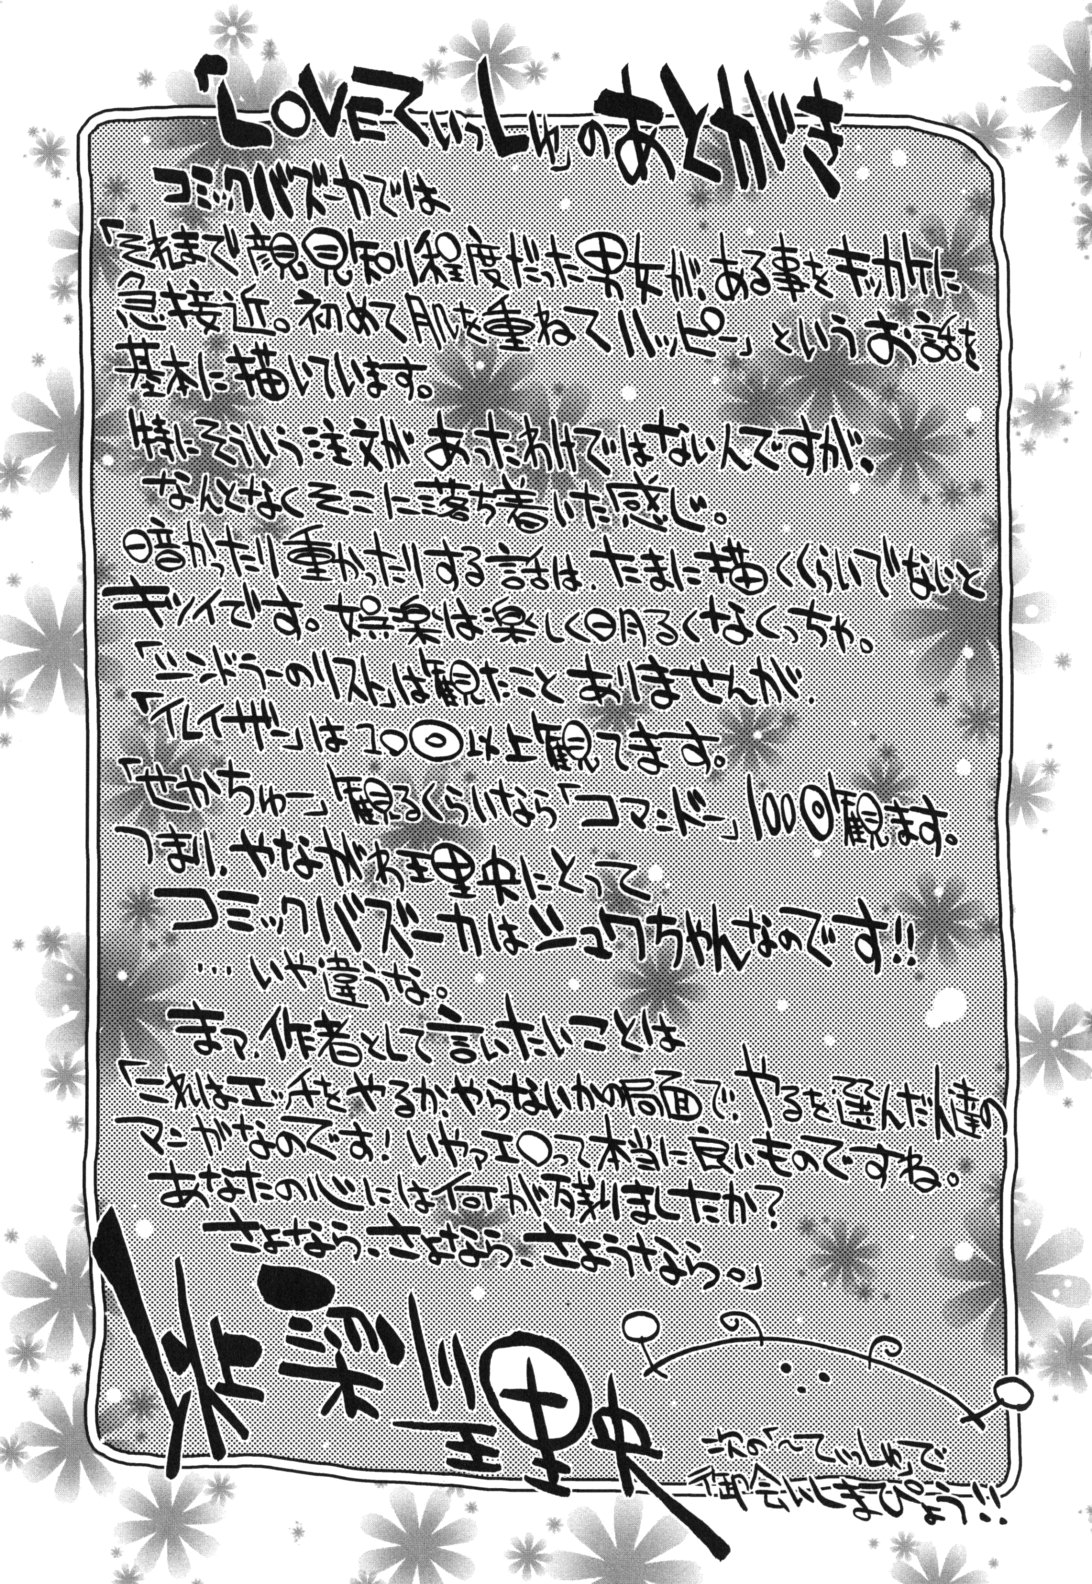 「LOVEてぃっしゅ」のあとがき
コミックバズーカでは
「それまで顔見知り程度だった男女が、ある事をキッカケに
急接近。初めて肌を重ねてハッピー」というお話を
基本に描いています。
特にそういう注文があったわけではないんですが、
なんとなくそこに落ち着いた感じ。
暗かったり重かったりする話は、たまに描くくらいでないと
キツイです。娯楽は楽しく明るくなくっちゃ。
「シンドラーのリスト」は観たことありませんが、
「イレイザー」は10回以上観てます。
「せかちゅー」観るくらいなら「コマンドー」100回観ます。
つまり、やながわ理央にとって
コミックバズーカはシュワちゃんなのです!!
…いや違うな。
まっ、作者として言いたいことは
「これはエッチをやるか、やらないかの局面で、やるを選んだ人達の
マンガなのです!いやァエロって本当に良いものですね。
あなたの心には何が残りましたか?
さよなら、さよなら、さようなら。」
理央
次の「〜てぃっしゅ」で
御会いしまぴょう!!